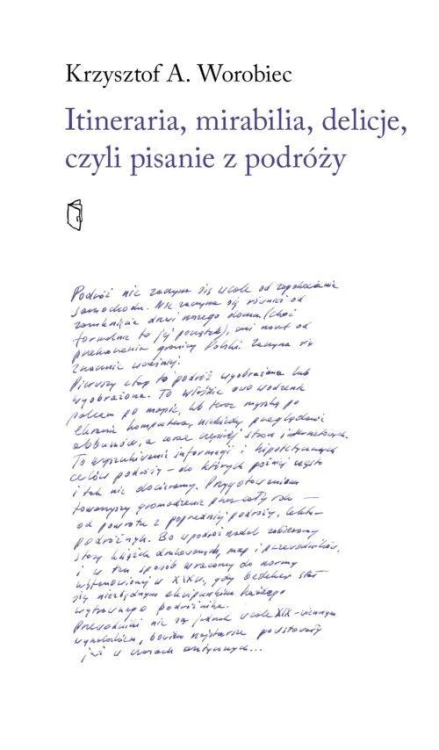 Krzysztof A. Worobiec
Itineraria, mirabilia, delicje,
czyli pisanie z podróży
Podróż nie zaczyna się wcale od zapakowania
samochodu. Nie zaczyna się również od
zamknięcia drzwi naszego domu (choć
formalnie to jej początek), ani nawet od
przekroczenia granicy Polski. Zaczyna się
znacznie wcześniej.
Pierwszy etap to podróż wyobrażona lub
wyobrażana. To właśnie owo wodzenie
palcem po mapie, lub teraz myszką po
ekranie komputera, niekiedy przeglądanie
albumów, a coraz częściej stron internetowych.
To wyszukiwanie informacji i hipotetycznych
celów podróży – do których później często
i tak nie docieramy. Przygotowaniom
towarzyszy gromadzenie przez cały rok –
od powrotu z poprzedniej podróży, lektur
podróżnych. Bo w podróż nadal zabieramy
stosy książek drukowanych, map i przewodników,
i w ten sposób wracamy do normy
w XIX w., gdy bedeker stał
się niezbędnym ekwipunkiem każdego
wytrawnego podróżnika.
Przewodniki nie są jednak wcale XIX-wiecznym
wynalazkiem, bowiem najstarsze powstawały
już w czasach antycznych...